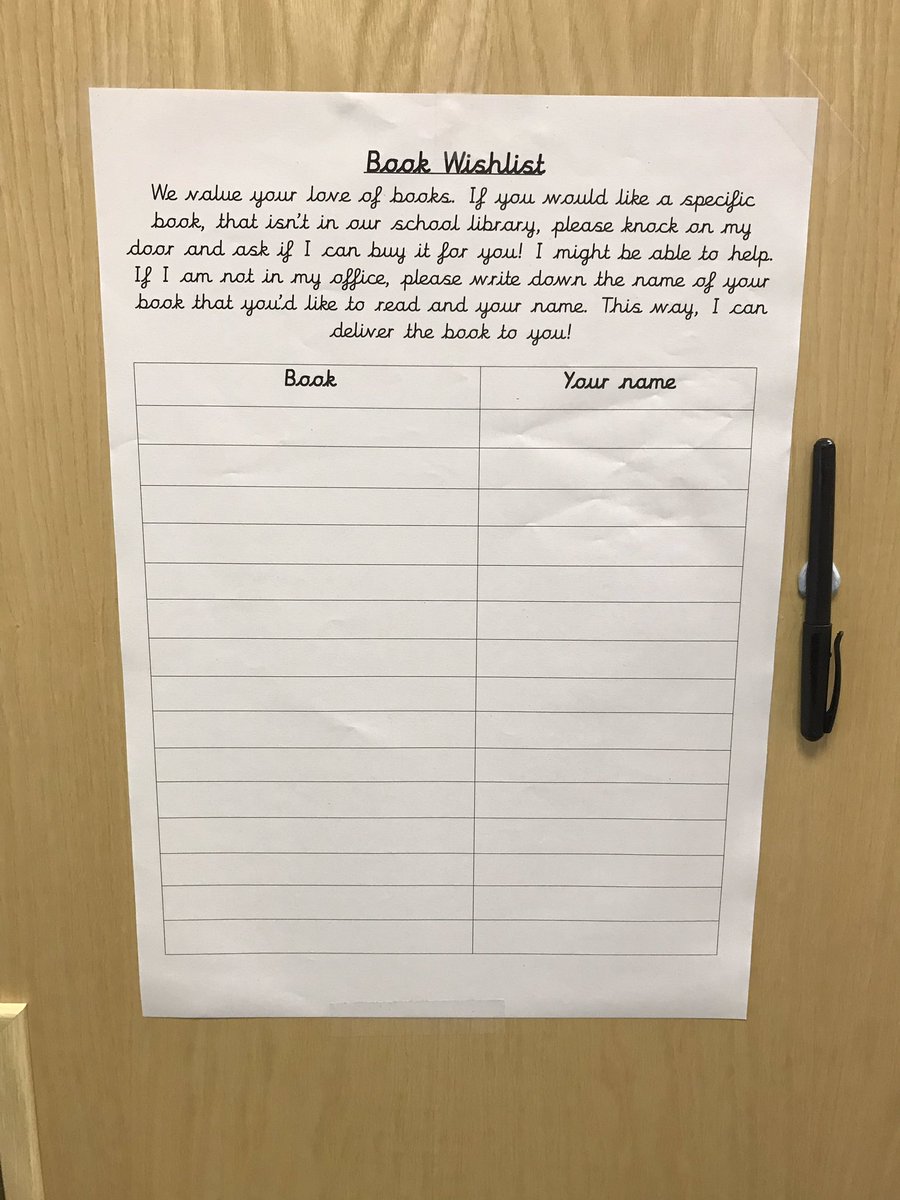 Book Wishlist
We value your love of books. If you would like a specific
book, that isn't in our school library, please knock on my
door and ask if I can buy it for you! I might be able to help.
If I am not in my office, please write down the name of your
book that you'd like to read and your name. This way, I can
deliver the book to you!
Book Your name